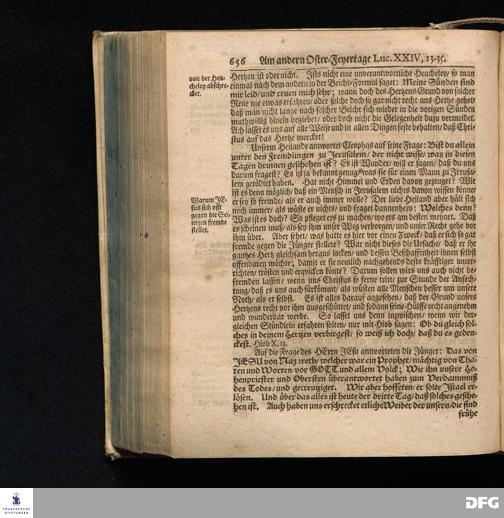 656 Am andern Oster-Feyertage Luc. XXIV, 13-35.
von der Heu-
cheley abschre-
cket.
Hertzen ist oder nicht. Ists nicht eine unverantwortliche Heucheley/ so man
einmal nach dem andern in der Beicht-Formul saget: Meine Sünden sind
mir leid/ und reuen mich sehr; wann doch des Hertzens Grund von solcher
Reue nie etwas erfahren/ oder solche doch so gar nicht recht ans Hertze gehet/
daß man nicht lange nach solcher Beicht sich wieder in die vorigen Sünden
muthwillig hinein begiebet/ oder doch nicht die Gelegenheit dazu vermeidet.
Ach lasset es uns auf alle Weise und in allen Dingen feste behalten/ daß Chri-
stus auf das Hertze mercket!
Unserm Heilande antwortet Cleophas auf seine Frage: Bist du allein
unter den Fremdlingen zu Jerusalem/ der nicht wisse/ was in diesen
Tagen drinnen geschehen ist? Es ist Wunder/ will er sagen/ daß du uns
darum fragest? Es ist ja bekannt genug/ was sie für einen Mann zu Jerusa-
lem getödtet haben. Hat nicht Himmel und Erden davon gezeuget? Wie
ist es denn möglich/ daß ein Mensch in Jerusalem nichts davon wissen könne/
Warum JE-
sus sich offt
gegen die Sei-
nigen fremde
stellet.
er sey so fremde/ als er auch immer wolle? Der liebe Heiland aber hält sich
noch immer als wüste er nichts/ und fraget dannenhero: Welches denn?
Was ist es doch? So pfleget ers zu machen/ wo ers am besten meynet. Daß
es scheinen muß/ als sey ihm unser Weg verborgen/ und unser Recht gehe vor
ihm über. Aber sehet/ was hatte er hier vor einen Zweck/ daß er sich so gar
fremde gegen die Jünger stellete? War nicht dieses die Ursach/ daß er ihr
gantzes Hertz gleichsam heraus locken/ und dessen Beschaffenheit ihnen selbst
offenbaren möchte; damit er sie nemlich nachgehends desto kräfftiger unter-
richten/ trösten und erquicken könte? Darum sollen wirs uns auch nicht be-
fremden lassen/ wenn uns Christus so ferne tritt/ zur Stunde der Anfech-
tung/ daß es uns auch fürkömmt/ als wüsten alle Menschen besser um unsere
Noth/ als er selbst. Es ist alles darauf angesehen/ daß der Grund unsers
Hertzens recht vor ihm ausgeschüttet/ und sodann seine Hülffe recht angenehm
und wunderbar werde. So lasset uns denn inzwischen/ wenn wir der-
gleichen Stündlein erfahren solten/ nur mit Hiob sagen: Ob du gleich sol-
ches in deinem Hertzen verbirgest/ so weiß ich doch/ daß du es geden-
ckest. Hiob X. 13.
Auf die Frage des HErrn JEsu antworteten die Jünger: Das von
JESU von Nazareth/ welcher war ein Prophet/ mächtig von Tha-
ten und Worten vor GOTT und allem Volck; Wie ihn unsere Ho-
henpriester und Obersten überantwortet haben zum Verdammniß
des Todes/ und gecreutziget. Wir aber hoffeten/ er solte Israel er-
lösen. Und über das alles ist heute der dritte Tag/ daß solches gesche-
hen ist. Auch haben uns erschrecket etliche Weiber der unsern/ die sind
frühe
FRANCKESCHE
STIFTUNGEN
DFG